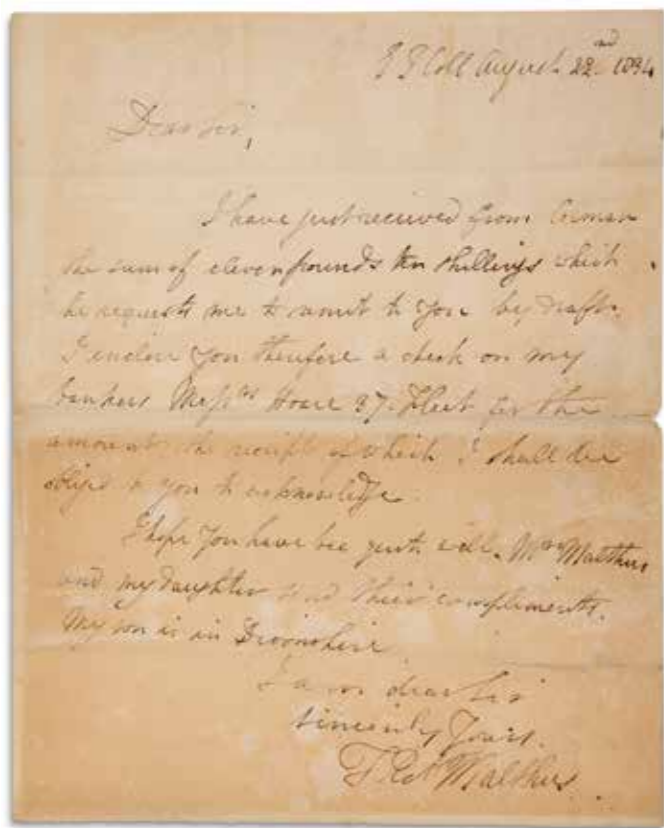 E I Coll August 22nd 1834
Dear Sir,
I have just received from
the sum of eleven pounds ten shillings which
he requests me to remit to you by draft.
I enclose you therefore a check on my
bankers Messrs Hoare 37. Fleet for the
amount the receipt of which I shall be
obliged to you to acknowledge.
I hope you have bee quite well. Mrs Malthus
and my daughter send their compliments.
My son is in Devonshire
I am dear Sir
sincerely Yours.
T. Robt Malthus.